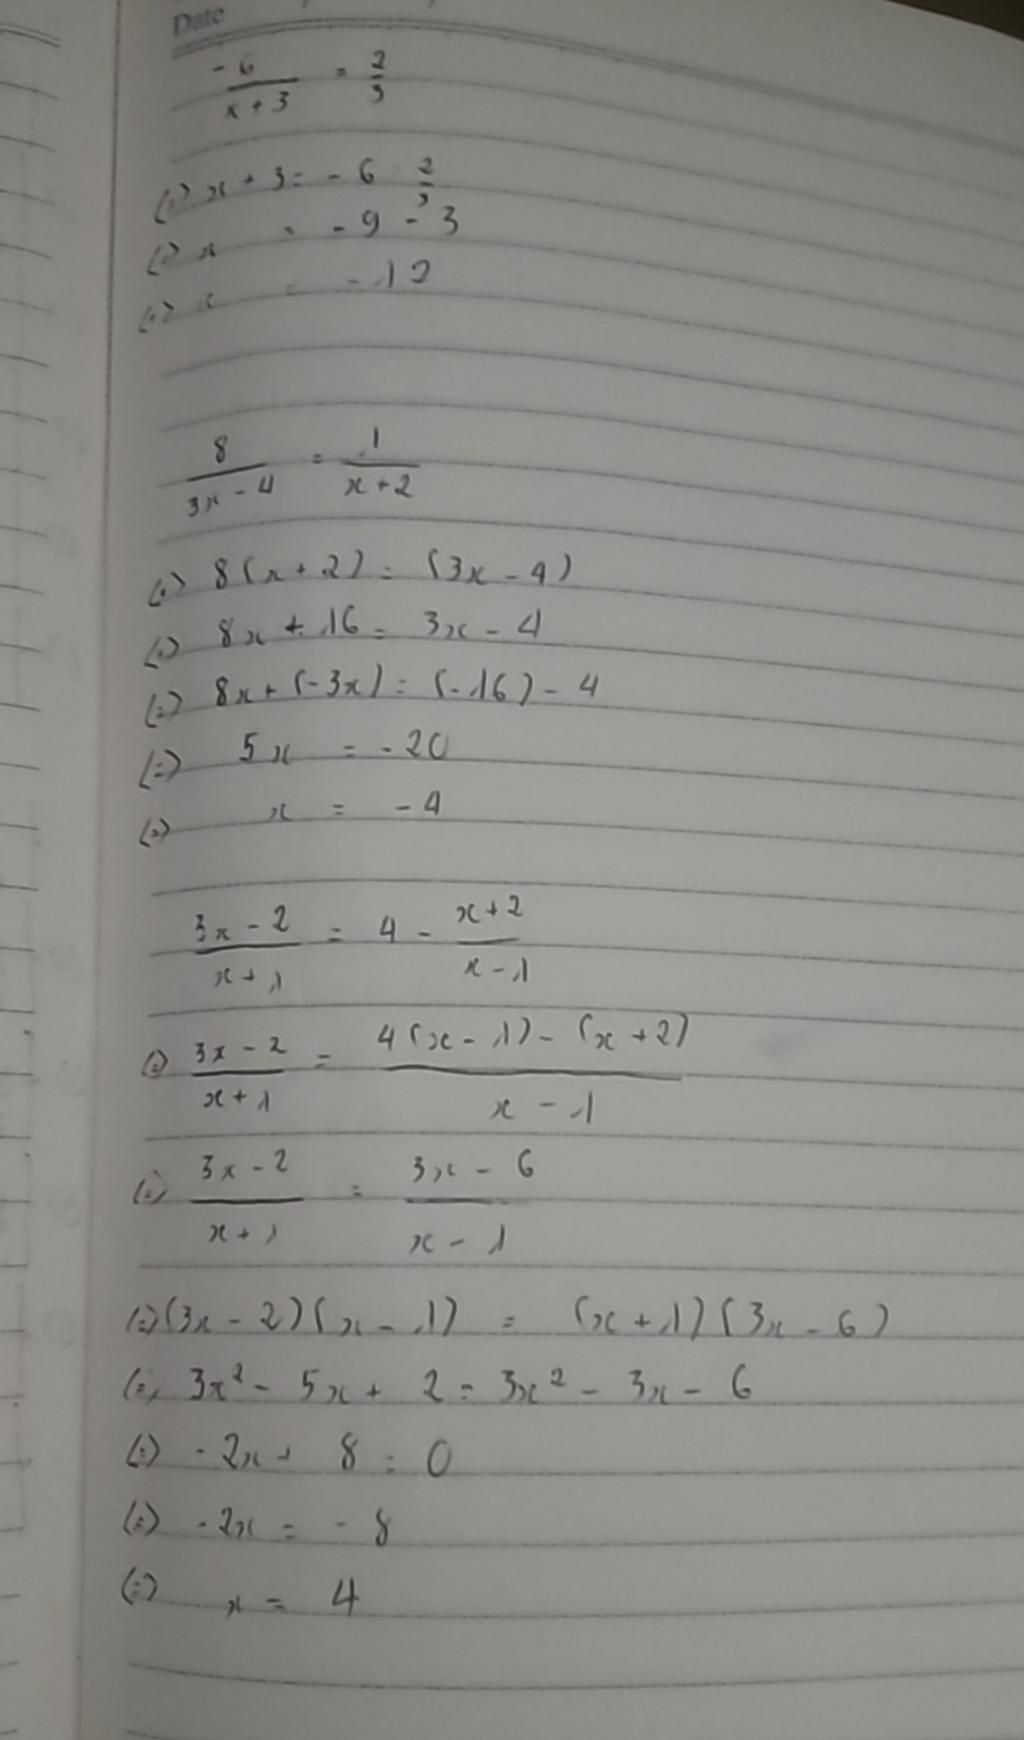 Date
-6/(x+3) = 2/3
(=) x + 3 = -6 2/3
(=) x = -9 - 3
(=) x = -12
8/(3x - 4) = 1/(x+2)
(=) 8(x + 2) = (3x - 4)
(=) 8x + 16 = 3x - 4
(=) 8x + (-3x) = (-16) - 4
(=) 5x = -20
(=) x = -4
(3x - 2)/(x + 1) = 4 - (x+2)/(x - 1)
(=) (3x - 2)/(x + 1) = (4(x - 1) - (x + 2))/(x - 1)
(=) (3x - 2)/(x + 1) = (3x - 6)/(x - 1)
(=) (3x - 2)(x - 1) = (x + 1)(3x - 6)
(=) 3x² - 5x + 2 = 3x² - 3x - 6
(=) -2x + 8 = 0
(=) -2x = -8
(=) x = 4